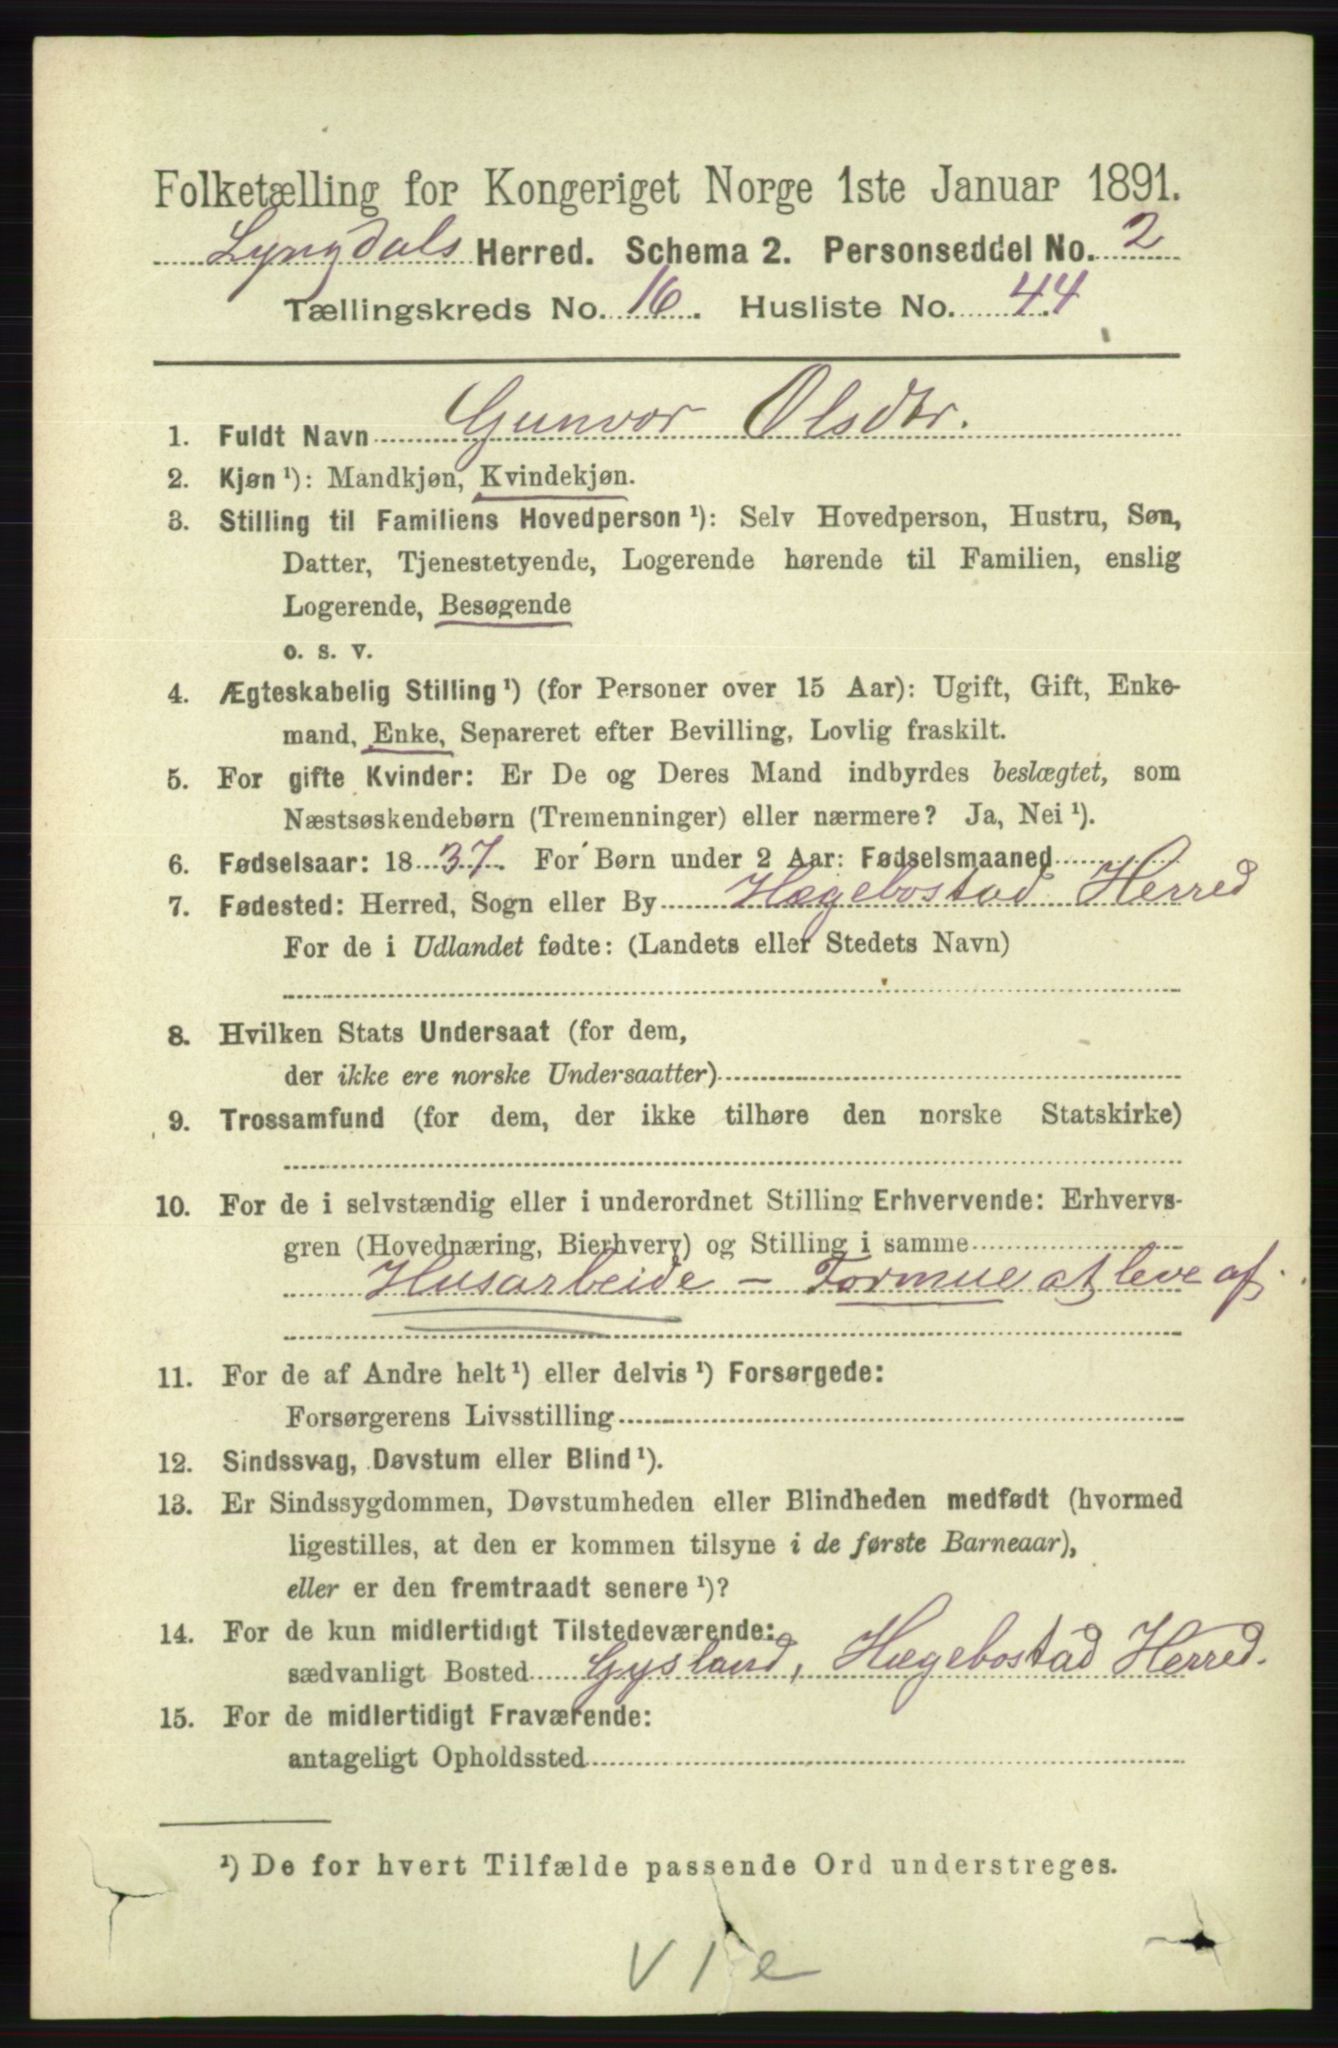 Folketælling for Kongeriget Norge 1ste Januar 1891.
Lyngdals Herred. Schema 2. Personseddel No. 2
Tællingskreds No. 16. Husliste No. 44
1. Fuldt Navn Gunvor Olsdtr.
2. Kjøn ¹): Mandkjøn, Kvindekjøn.
3. Stilling til Familiens Hovedperson ¹): Selv Hovedperson, Hustru, Søn,
Datter, Tjenestetyende, Logerende hørende til Familien, enslig
Logerende, Besøgende
o. s. v.
4. Ægteskabelig Stilling ¹) (for Personer over 15 Aar): Ugift, Gift, Enke-
mand, Enke, Separeret efter Bevilling, Lovlig fraskilt.
5. For gifte Kvinder: Er De og Deres Mand indbyrdes beslægtet, som
Næstsøskendebørn (Tremenninger) eller nærmere? Ja, Nei ¹).
6. Fødselsaar: 1837. For Børn under 2 Aar: Fødselsmaaned
7. Fødested: Herred, Sogn eller By Hægebostad Herred
For de i Udlandet fødte: (Landets eller Stedets Navn)
8. Hvilken Stats Undersaat (for dem,
der ikke ere norske Undersaatter)
9. Trossamfund (for dem, der ikke tilhøre den norske Statskirke)
10. For de i selvstændig eller i underordnet Stilling Erhvervende: Erhvervs-
gren (Hovednæring, Bierhverv) og Stilling i samme
Husarbeide – Formue at leve af.
11. For de af Andre helt ¹) eller delvis ¹) Forsørgede:
Forsørgerens Livsstilling
12. Sindssvag, Døvstum eller Blind ¹).
13. Er Sindssygdommen, Døvstumheden eller Blindheden medfødt (hvormed
ligestilles, at den er kommen tilsyne i de første Barneaar),
eller er den fremtraadt senere ¹)?
14. For de kun midlertidigt Tilstedeværende:
sædvanligt Bosted Gysland, Hægebostad Herred.
15. For de midlertidigt Fraværende:
antageligt Opholdssted
¹) De for hvert Tilfælde passende Ord understreges.